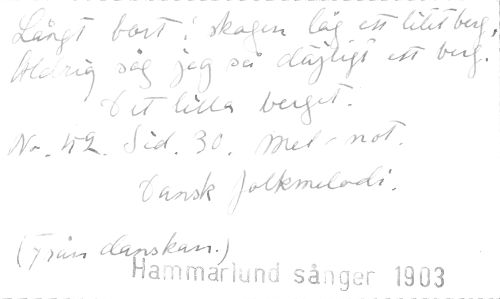 Långt bort i skogen låg ett litet berg,
Aldrig såg jag så dajligt ett berg.
Det lilla berget.
No. 42. Sid. 30. mel-not.
Dansk folkmelodi.
(Från danskan.)
Hammarlund sånger 1903